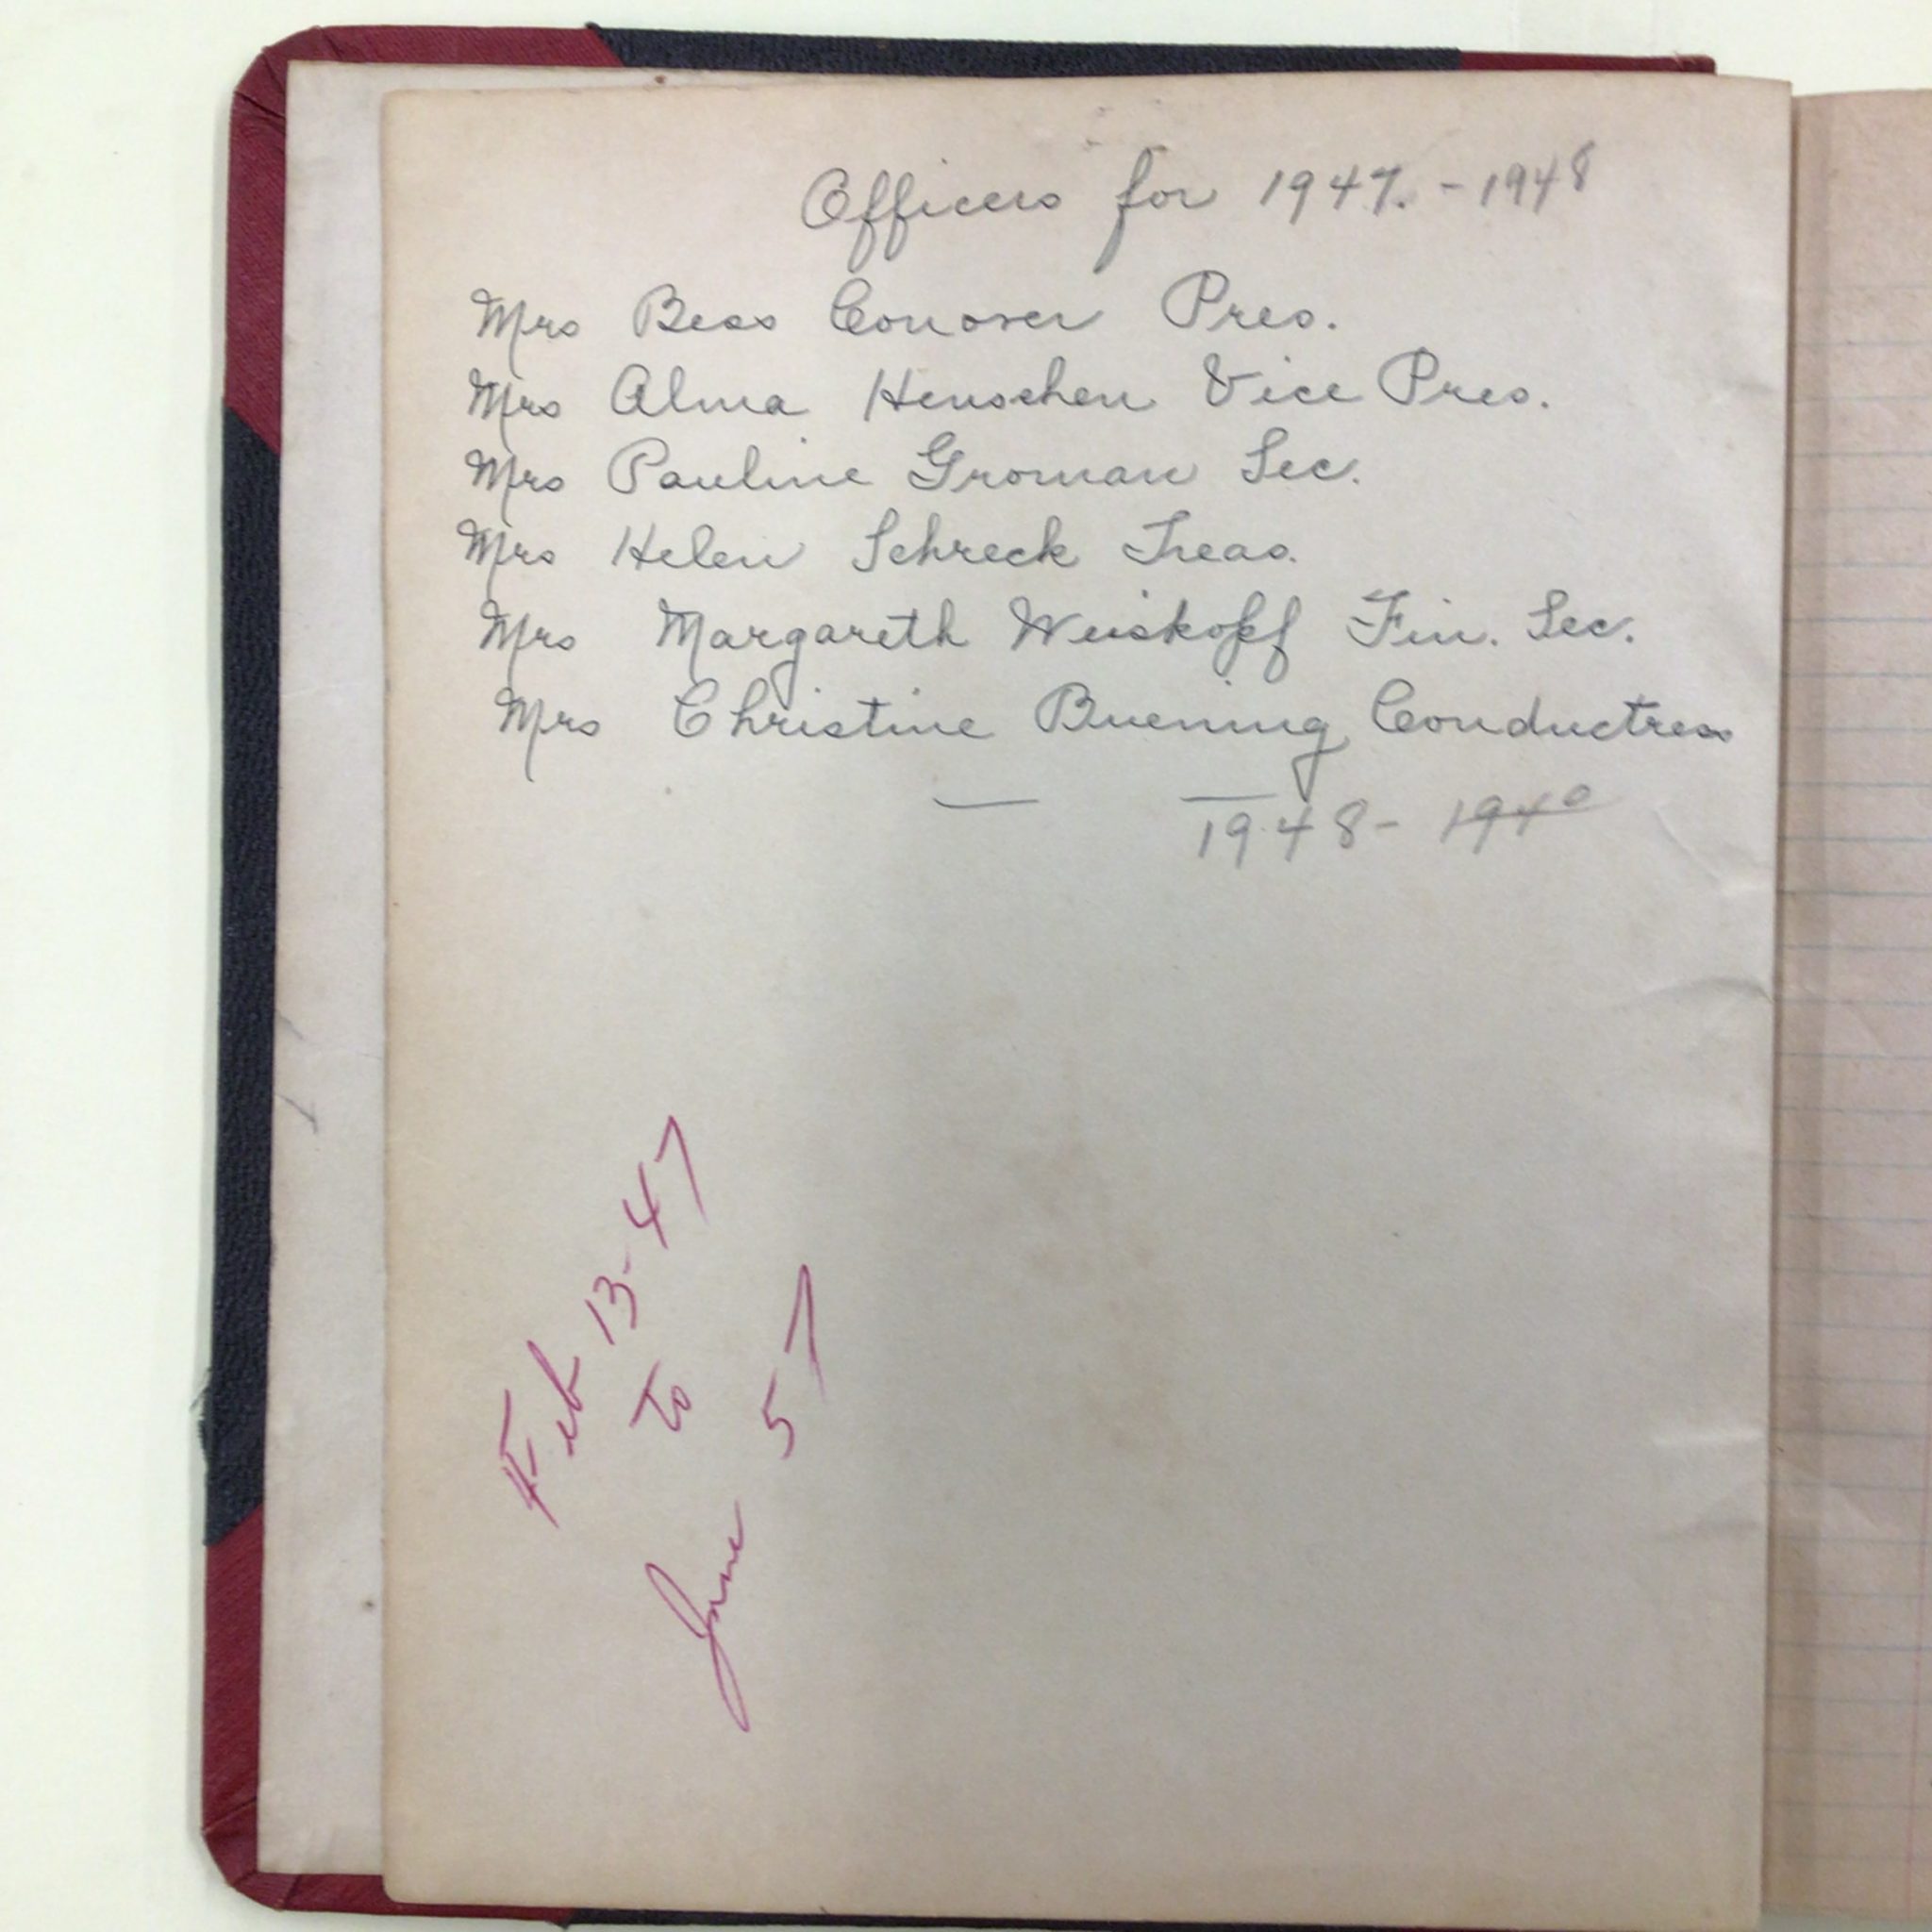 Officers for 1947. - 1948
Mrs Bess Conover Pres.
Mrs Alma Henschen Vice Pres.
Mrs Pauline Groman Sec.
Mrs Helen Schreck Treas.
Mrs Margareth Weiskopf Fin. Sec.
Mrs Christine Buening Conductress
1948 -
Feb 13-47
To
June 57